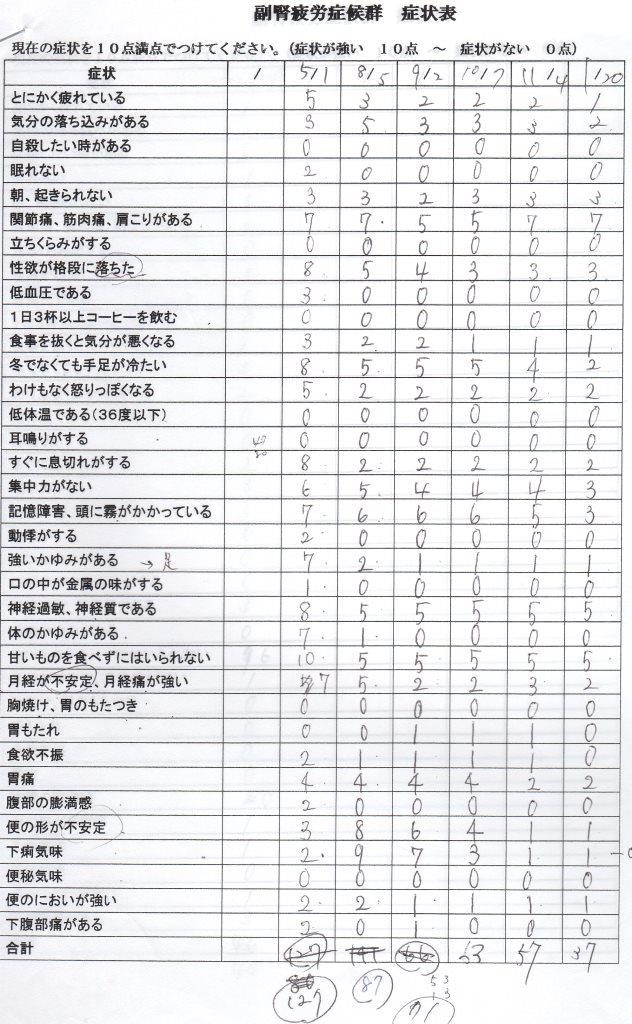 副腎疲労症候群　症状表
現在の症状を１０点満点でつけてください。(症状が強い　１０点　～　症状がない　０点)
症状 / 5/1 8/5 9/2 10/7 11/4 1/20
とにかく疲れている 5 3 2 2 2 1
気分の落ち込みがある 3 5 3 3 3 2
自殺したい時がある 0 0 0 0 0 0
眠れない 2 0 0 0 0 0
朝、起きられない 3 3 2 3 3 3
関節痛、筋肉痛、肩こりがある 7 7 5 5 7 7
立ちくらみがする 0 0 0 0 0 0
性欲が格段に落ちた 8 5 4 3 3 3
低血圧である 3 0 0 0 0 0
１日３杯以上コーヒーを飲む 0 0 0 0 0 0
食事を抜くと気分が悪くなる 3 2 2 1 1 1
冬でなくても手足が冷たい 8 5 5 5 4 2
わけもなく怒りっぽくなる 5 2 2 2 2 2
低体温である(３６度以下) 0 0 0 0 0 0
耳鳴りがする 0 0 0 0 0 0
すぐに息切れがする 8 2 2 2 2 2
集中力がない 6 5 4 4 4 3
記憶障害、頭に霧がかかっている 7 6 6 6 5 3
動悸がする 2 0 0 0 0 0
強いかゆみがある →足 7 2 1 1 1 1
口の中が金属の味がする 1 0 0 0 0 0
神経過敏、神経質である 8 5 5 5 5 5
体のかゆみがある 7 1 0 0 0 0
甘いものを食べずにはいられない 10 5 5 5 5 5
月経が不安定、月経痛が強い 7 5 2 2 3 2
胸焼け、胃のもたつき 0 0 0 0 0 0
胃もたれ 0 0 1 1 1 0
食欲不振 2 1 1 1 1 0
胃痛 4 4 4 4 2 2
腹部の膨満感 2 0 0 0 0 0
便の形が不安定 3 8 6 4 1 1
下痢気味 2 9 7 3 1 1
便秘気味 0 0 0 0 0 0
便のにおいが強い 2 2 1 1 1 1
下腹部痛がある 2 0 1 0 0 0
合計 127 63 57 37
127 87 71